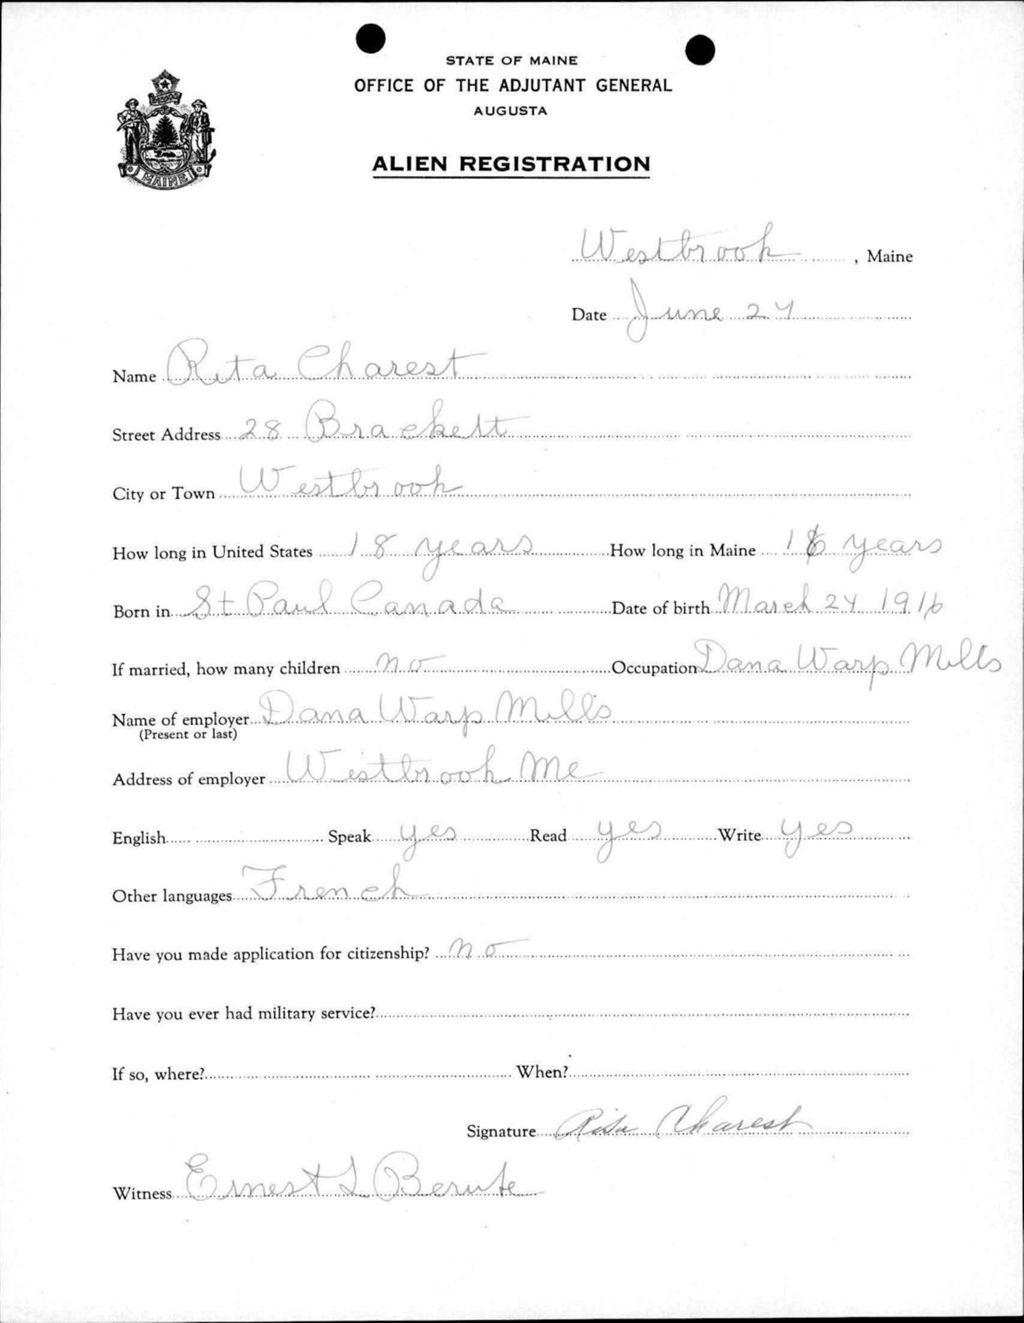 STATE OF MAINE
OFFICE OF THE ADJUTANT GENERAL
AUGUSTA
ALIEN REGISTRATION
MAINE
Westbrook, Maine
Date June 24
Name Rita Charest
Street Address 28 Brackett
City or Town Westbrook
How long in United States 18 years How long in Maine years
Born in St Paul Canada Date of birth March 24 1916
If married, how many children no Occupation Dana Warp Mills
Name of employer Dana Warp Mills
(Present or last)
Address of employer Westbrook Me
English Speak yes Read yes Write yes
Other languages French
Have you made application for citizenship? no
Have you ever had military service?
If so, where? When?
Signature Rita Charest
Witness Ernest L